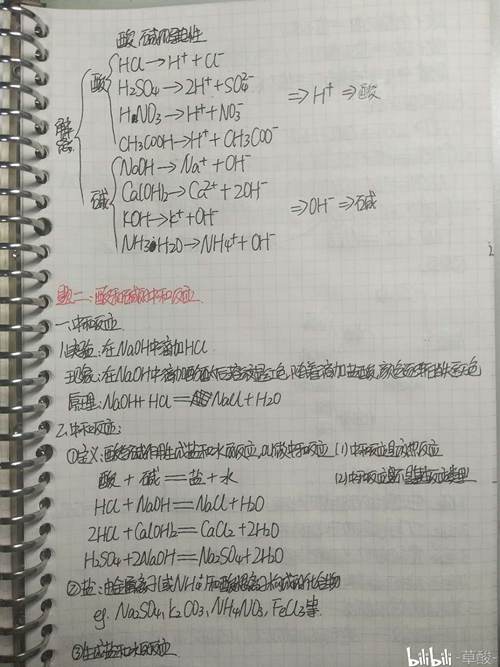 酸、碱的通性
HCl→H⁺+Cl⁻
酸 H2SO4→2H⁺+SO4²⁻
HNO3→H⁺+NO3⁻ ⇒H⁺⇒酸
CH3COOH→H⁺+CH3COO⁻
解离
NaOH→Na⁺+OH⁻
碱 Ca(OH)2→Ca²⁺+2OH⁻
KOH→K⁺+OH⁻ ⇒OH⁻⇒碱
NH3·H2O→NH4⁺+OH⁻
二：酸和碱的中和反应
一、中和反应
1.实验：在NaOH中滴加HCl
现象：在NaOH中滴加酚酞后溶液显红色，随着滴加盐酸，颜色逐渐由红色
原理：NaOH+HCl══NaCl+H2O
2.中和反应：
①定义：酸与碱作用生成盐和水的反应，叫做中和反应 (1)中和反应是放热反应
酸+碱══盐+水 (2)中和反应不是基本反应类型
HCl+NaOH══NaCl+H2O
2HCl+Ca(OH)2══CaCl2+2H2O
H2SO4+2NaOH══Na2SO4+2H2O
②盐：由金属离子或NH4⁺和酸根离子构成的化合物
eg. Na2SO4、K2CO3、NH4NO3、FeCl3等
③生成盐和水的反应
bilibili -草酸-